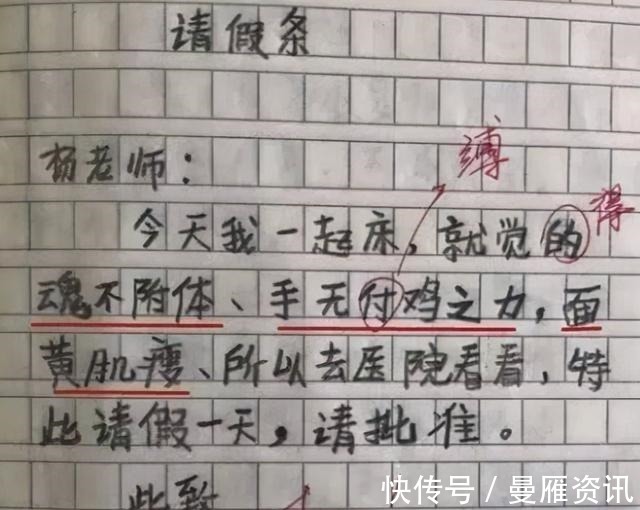 请假条
缚
杨老师：
得
今天我一起床，就觉的
魂不附体、手无付鸡之力，面
黄肌瘦、所以去医院看看，特
此请假一天，请批准。
此致
快传号／曼雁资讯